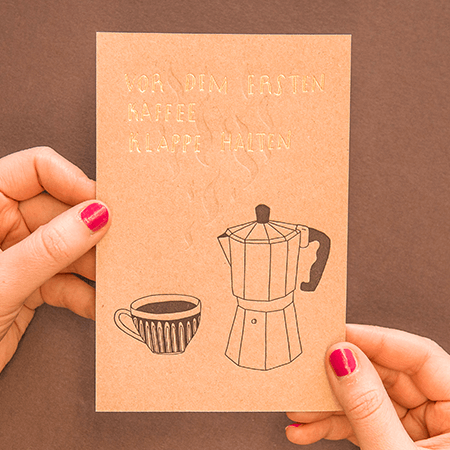 VOR DEM ERSTEN
KAFFEE
KLAPPE HALTEN